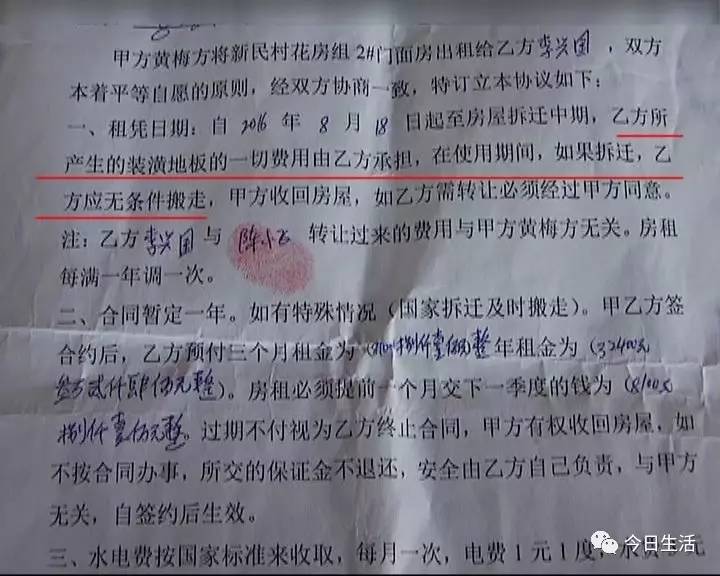 甲方黄梅方将新民村花房组2#门面房出租给乙方李兴国，双方
本着平等自愿的原则，经双方协商一致，特订立本协议如下：
一、租凭日期：自2016年8月18日起至房屋拆迁中期，乙方所
产生的装潢地板的一切费用由乙方承担，在使用期间，如果拆迁，乙
方应无条件搬走，甲方收回房屋，如乙方需转让必须经过甲方同意。
注：乙方李兴国与陈小飞转让过来的费用与甲方黄梅方无关。房租
每满一年调一次。
二、合同暂定一年。如有特殊情况（国家拆迁及时搬走）。甲乙方签
合约后，乙方预付三个月租金为（8100捌仟壹佰元整年租金为（32400元
叁万贰仟肆佰元整）。房租必须提前一个月交下一季度的钱为（8100元
捌仟壹佰元整。过期不付视为乙方终止合同，甲方有权收回房屋，如
不按合同办事，所交的保证金不退还，安全由乙方自己负责，与甲方
无关，自签约后生效。
三、水电费按国家标准来收取，每月一次，电费1元1度，水费 元
今日生活